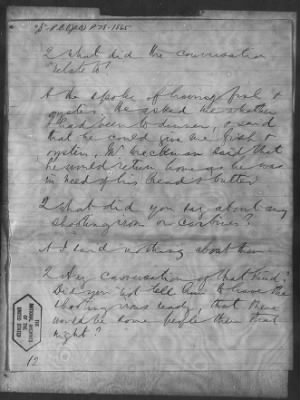 Q What did the conversation
relate to?
A He spoke of having fish &
oysters. He asked me whether
I had been to dinner, & said
that he could give me fish &
oysters, Mr said that
he would return home as he was
in need of his bread & butter.
Q What did you say about any
shooting irons or carbines?
A I said nothing about them
Q Any conversation of that kind?
Did you not tell him to have the
shooting irons ready, that there
would be some people there that
night?
12
THE
NATIONAL ARCHIVES
OF THE
UNITED STATES